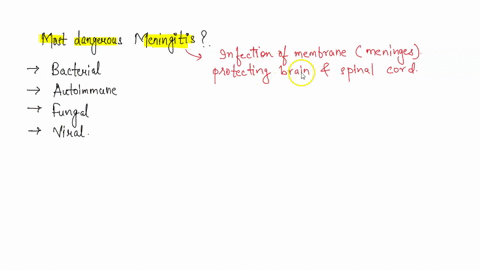 Most dangerous Meningitis ?
Infection of membrane (meninges)
protecting brain & spinal cord.
→ Bacterial
→ AutoImmune
→ Fungal
→ Viral.